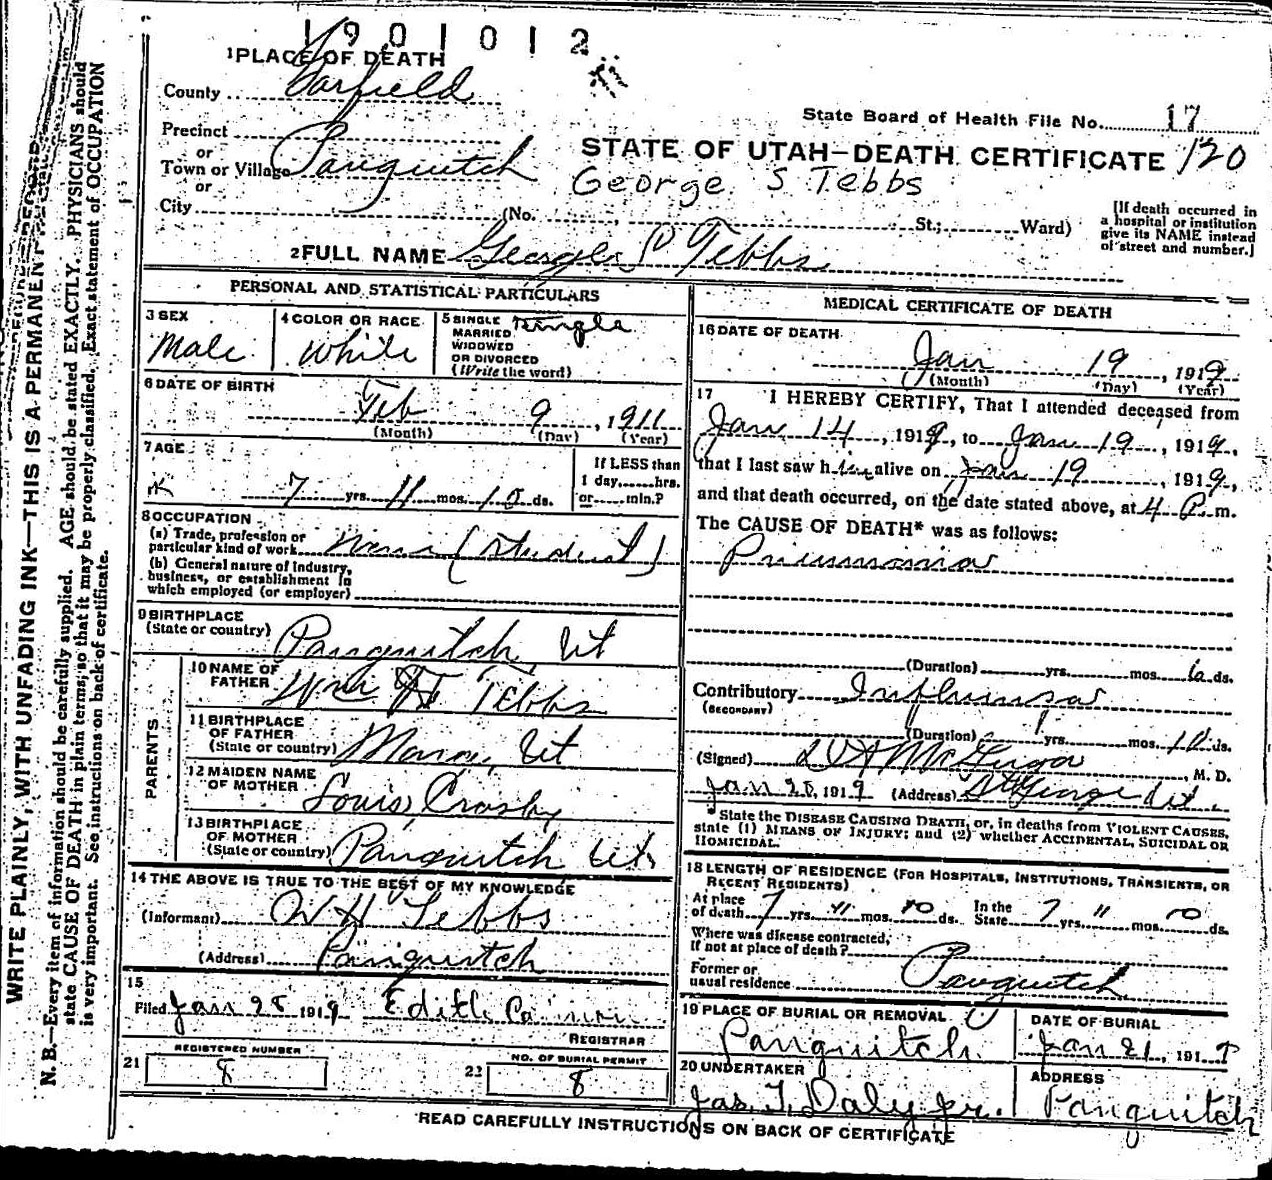 1901012
1 PLACE OF DEATH
County Garfield
State Board of Health File No. 17
Precinct
or
Town or Village Panguitch
or
City (No. St.; Ward)
STATE OF UTAH—DEATH CERTIFICATE 120
George S Tebbs
[If death occurred in
a hospital or institution
give its NAME instead
of street and number.]
2 FULL NAME George S Tebbs
PERSONAL AND STATISTICAL PARTICULARS
3 SEX
Male
4 COLOR OR RACE
White
5 SINGLE
MARRIED
WIDOWED
OR DIVORCED
(Write the word)
Single
6 DATE OF BIRTH
Feb 9, 1911
(Month) (Day) (Year)
7 AGE
7 yrs. 11 mos. 10 ds.
If LESS than
1 day, hrs.
or min.?
8 OCCUPATION
(a) Trade, profession or
particular kind of work None (Student)
(b) General nature of industry,
business, or establishment in
which employed (or employer)
9 BIRTHPLACE
(State or country) Panguitch, Ut
PARENTS
10 NAME OF
FATHER Wm H Tebbs
11 BIRTHPLACE
OF FATHER
(State or country) Ut
12 MAIDEN NAME
OF MOTHER Crosby
13 BIRTHPLACE
OF MOTHER
(State or country) Panguitch Ut
14 THE ABOVE IS TRUE TO THE BEST OF MY KNOWLEDGE
(Informant) W H Tebbs
(Address) Panguitch
15
Filed Jan 28 1919 Edith
REGISTRAR
REGISTERED NUMBER
21 8
NO. OF BURIAL PERMIT
22 8
MEDICAL CERTIFICATE OF DEATH
16 DATE OF DEATH
Jan 19, 1919
(Month) (Day) (Year)
17 I HEREBY CERTIFY, That I attended deceased from
Jan 14, 1919, to Jan 19, 1919,
that I last saw him alive on Jan 19, 1919,
and that death occurred, on the date stated above, at 4 P. m.
The CAUSE OF DEATH* was as follows:
Pneumonia
(Duration) yrs. mos. 6 ds.
Contributory Influenza
(SECONDARY)
(Duration) yrs. mos. 10 ds.
(Signed) , M. D.
Jan 28, 1919 (Address) St George Ut.
* State the DISEASE CAUSING DEATH, or, in deaths from VIOLENT CAUSES,
state (1) MEANS OF INJURY; and (2) whether ACCIDENTAL, SUICIDAL OR
HOMICIDAL.
18 LENGTH OF RESIDENCE (FOR HOSPITALS, INSTITUTIONS, TRANSIENTS, OR
RECENT RESIDENTS)
At place
of death 7 yrs. 11 mos. 10 ds. In the
State 7 yrs. 11 mos. 10 ds.
Where was disease contracted,
if not at place of death?
Former or
usual residence Panguitch
19 PLACE OF BURIAL OR REMOVAL
Panguitch
DATE OF BURIAL
Jan 21, 1919
20 UNDERTAKER
Jas. T. Daly Jr.
ADDRESS
Panguitch
READ CAREFULLY INSTRUCTIONS ON BACK OF CERTIFICATE
WRITE PLAINLY, WITH UNFADING INK—THIS IS A PERMANENT RECORD
N. B.—Every item of information should be carefully supplied. AGE should be stated EXACTLY. PHYSICIANS should
state CAUSE OF DEATH in plain terms, so that it may be properly classified. Exact statement of OCCUPATION
is very important. See instructions on back of certificate.